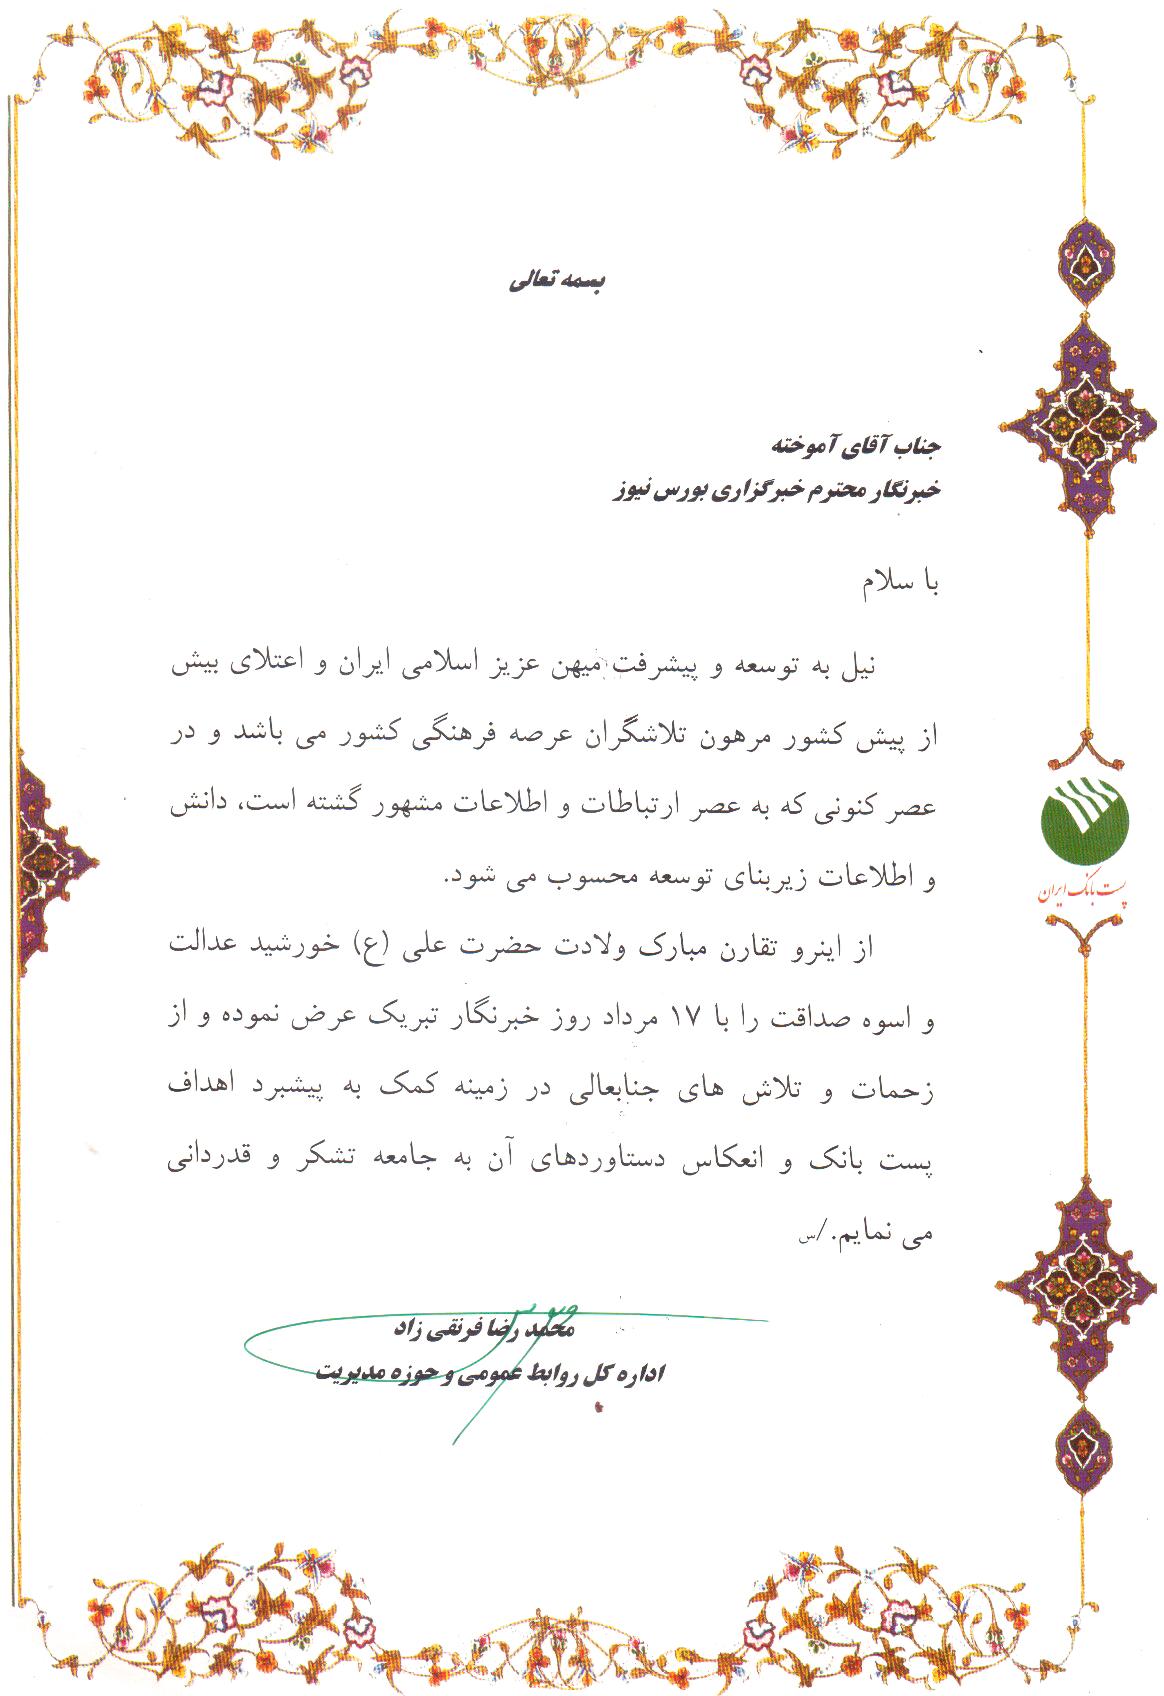 بسمه تعالی
جناب آقای آموخته
خبرنگار محترم خبرگزاری بورس نیوز
با سلام
نیل به توسعه و پیشرفت میهن عزیز اسلامی ایران و اعتلای بیش
از پیش کشور مرهون تلاشگران عرصه فرهنگی کشور می باشد و در
عصر کنونی که به عصر ارتباطات و اطلاعات مشهور گشته است، دانش
و اطلاعات زیربنای توسعه محسوب می شود.
پست بانک ایران
از اینرو تقارن مبارک ولادت حضرت علی (ع) خورشید عدالت
و اسوه صداقت را با ۱۷ مرداد روز خبرنگار تبریک عرض نموده و از
زحمات و تلاش های جنابعالی در زمینه کمک به پیشبرد اهداف
پست بانک و انعکاس دستاوردهای آن به جامعه تشکر و قدردانی
می نمایم./س
محمد رضا فرنقی زاد
اداره کل روابط عمومی و حوزه مدیریت